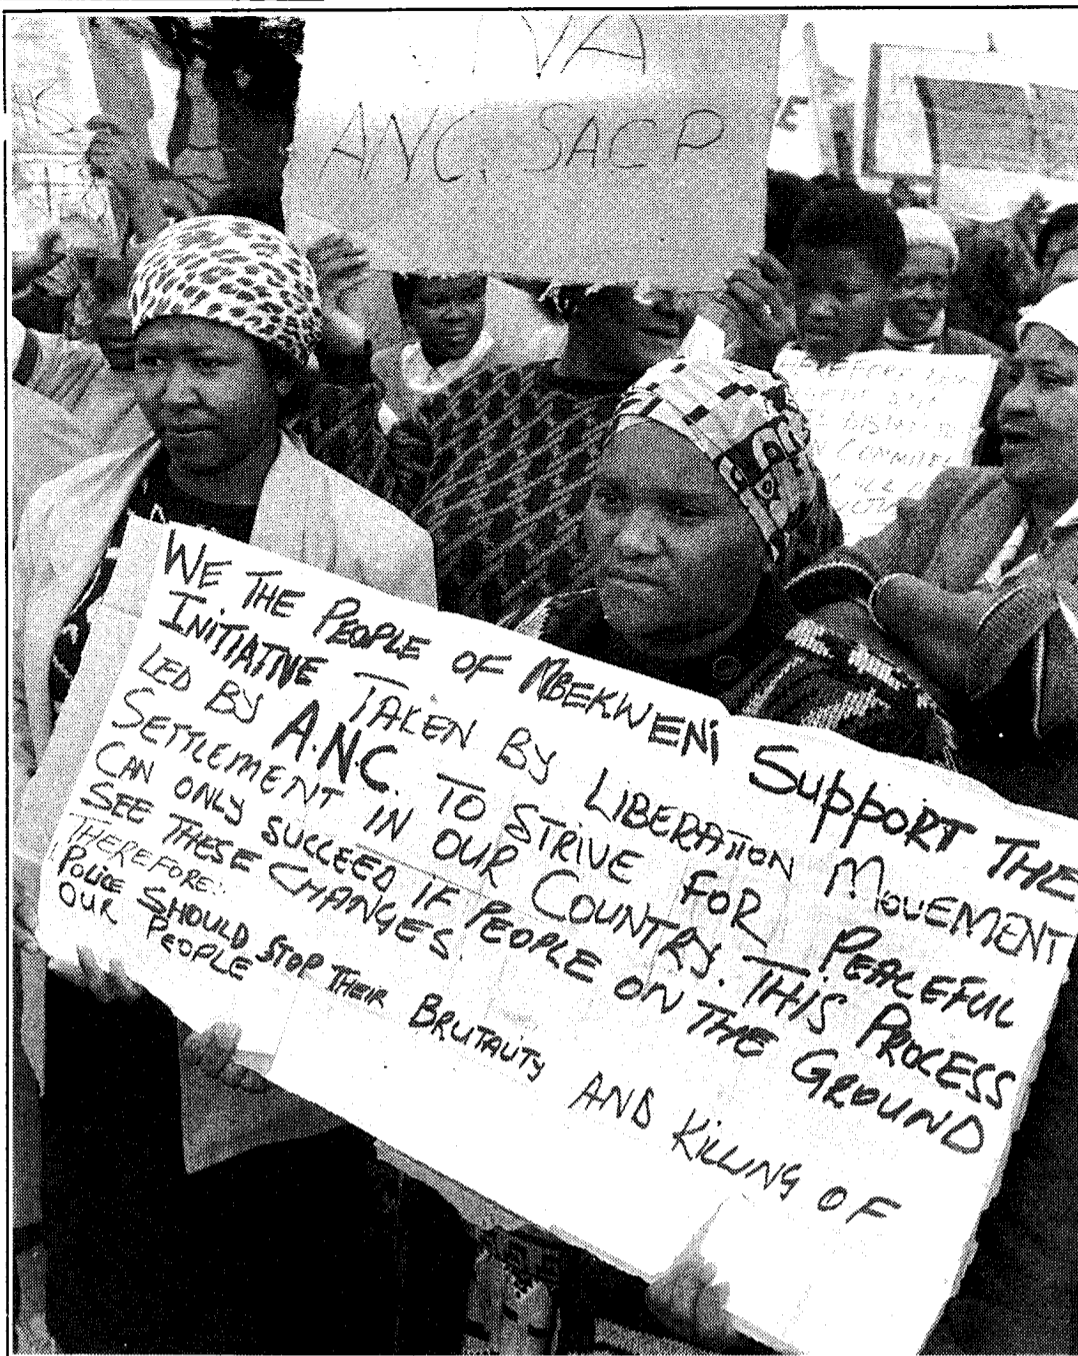 ANC. SACP
WE THE PEOPLE OF MBEKWENI SUPPORT THE
INITIATIVE TAKEN BY LIBERATION MOVEMENT
LED BY A.N.C. TO STRIVE FOR PEACEFUL
SETTLEMENT IN OUR COUNTRY. THIS PROCESS
CAN ONLY SUCCEED IF PEOPLE ON THE GROUND
SEE THESE CHANGES.
THEREFORE:
POLICE SHOULD STOP THEIR BRUTALITY AND KILLING OF
OUR PEOPLE